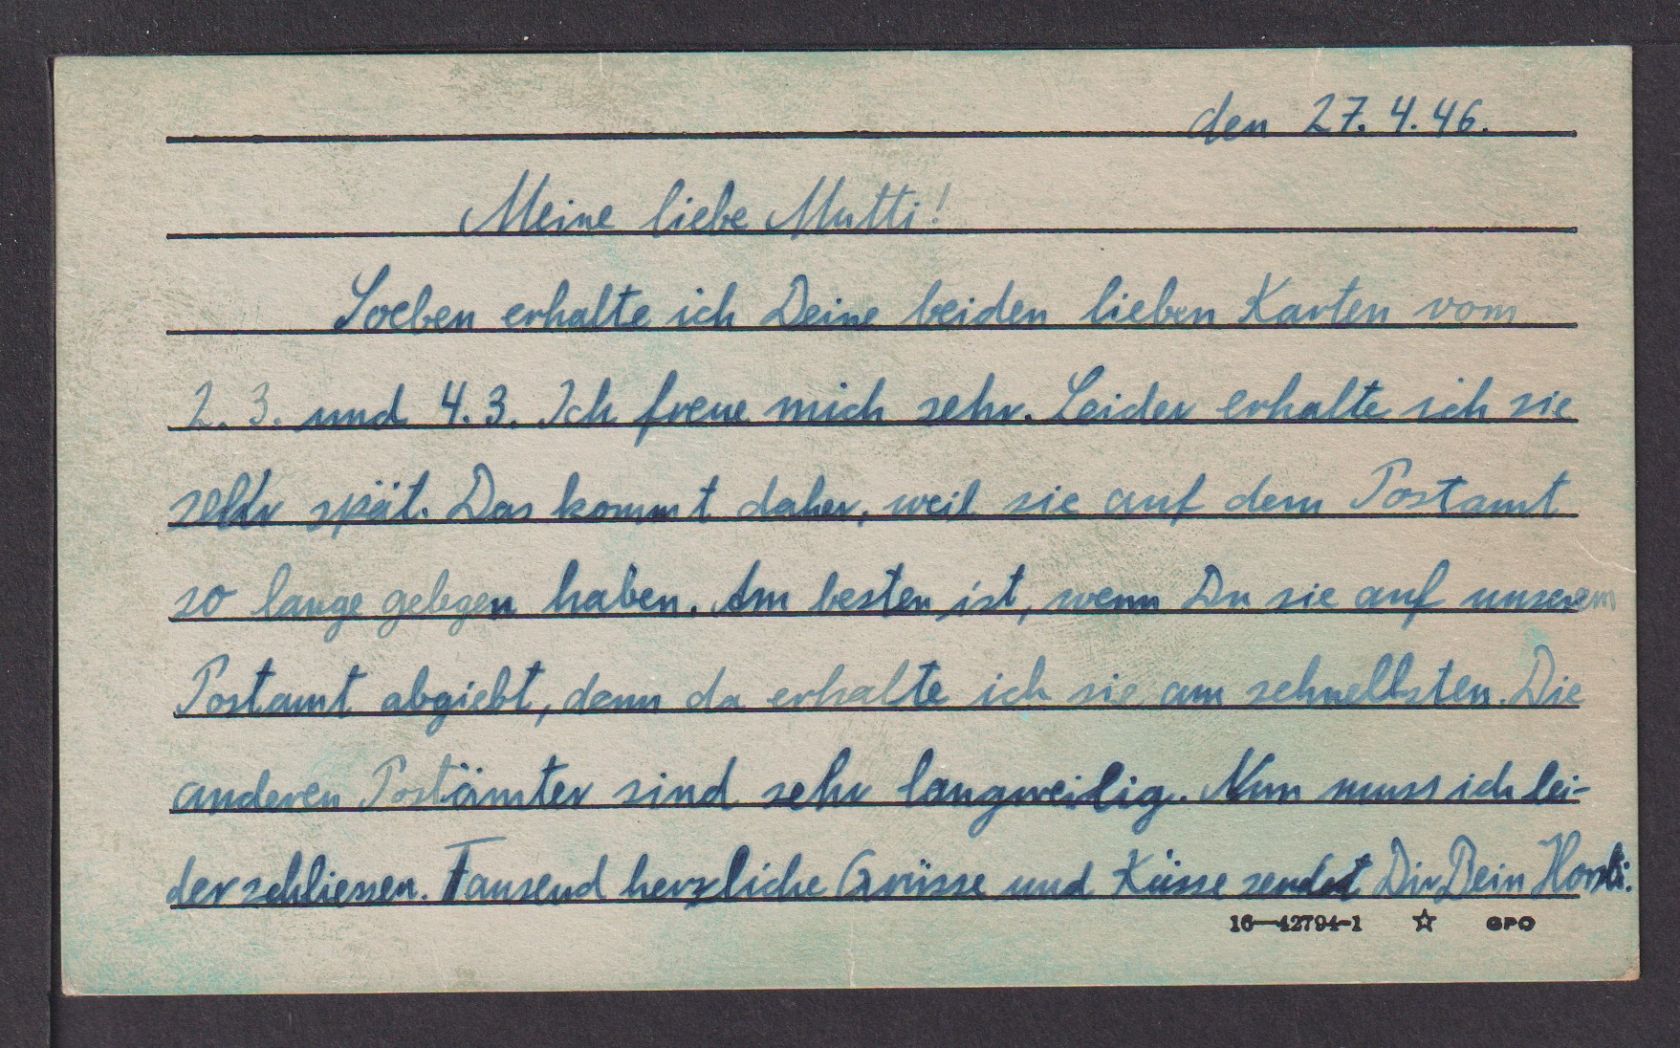 den 27.4.46.
Meine liebe Mutti!
Soeben erhalte ich Deine beiden lieben Karten vom
2.3. und 4.3. Ich freue mich sehr. Leider erhalte ich sie
sehr spät. Das kommt daher, weil sie auf dem Postamt
so lange gelegen haben. Am besten ist, wenn Du sie auf unserem
Postamt abgiebt, denn da erhalte ich sie am schnellsten. Die
anderen Postämter sind sehr langweilig. Nun muss ich lei-
der schliessen. Tausend herzliche Grüsse und Küsse sendet Dir Dein Horsti.
16—42794-1 ☆ GPO